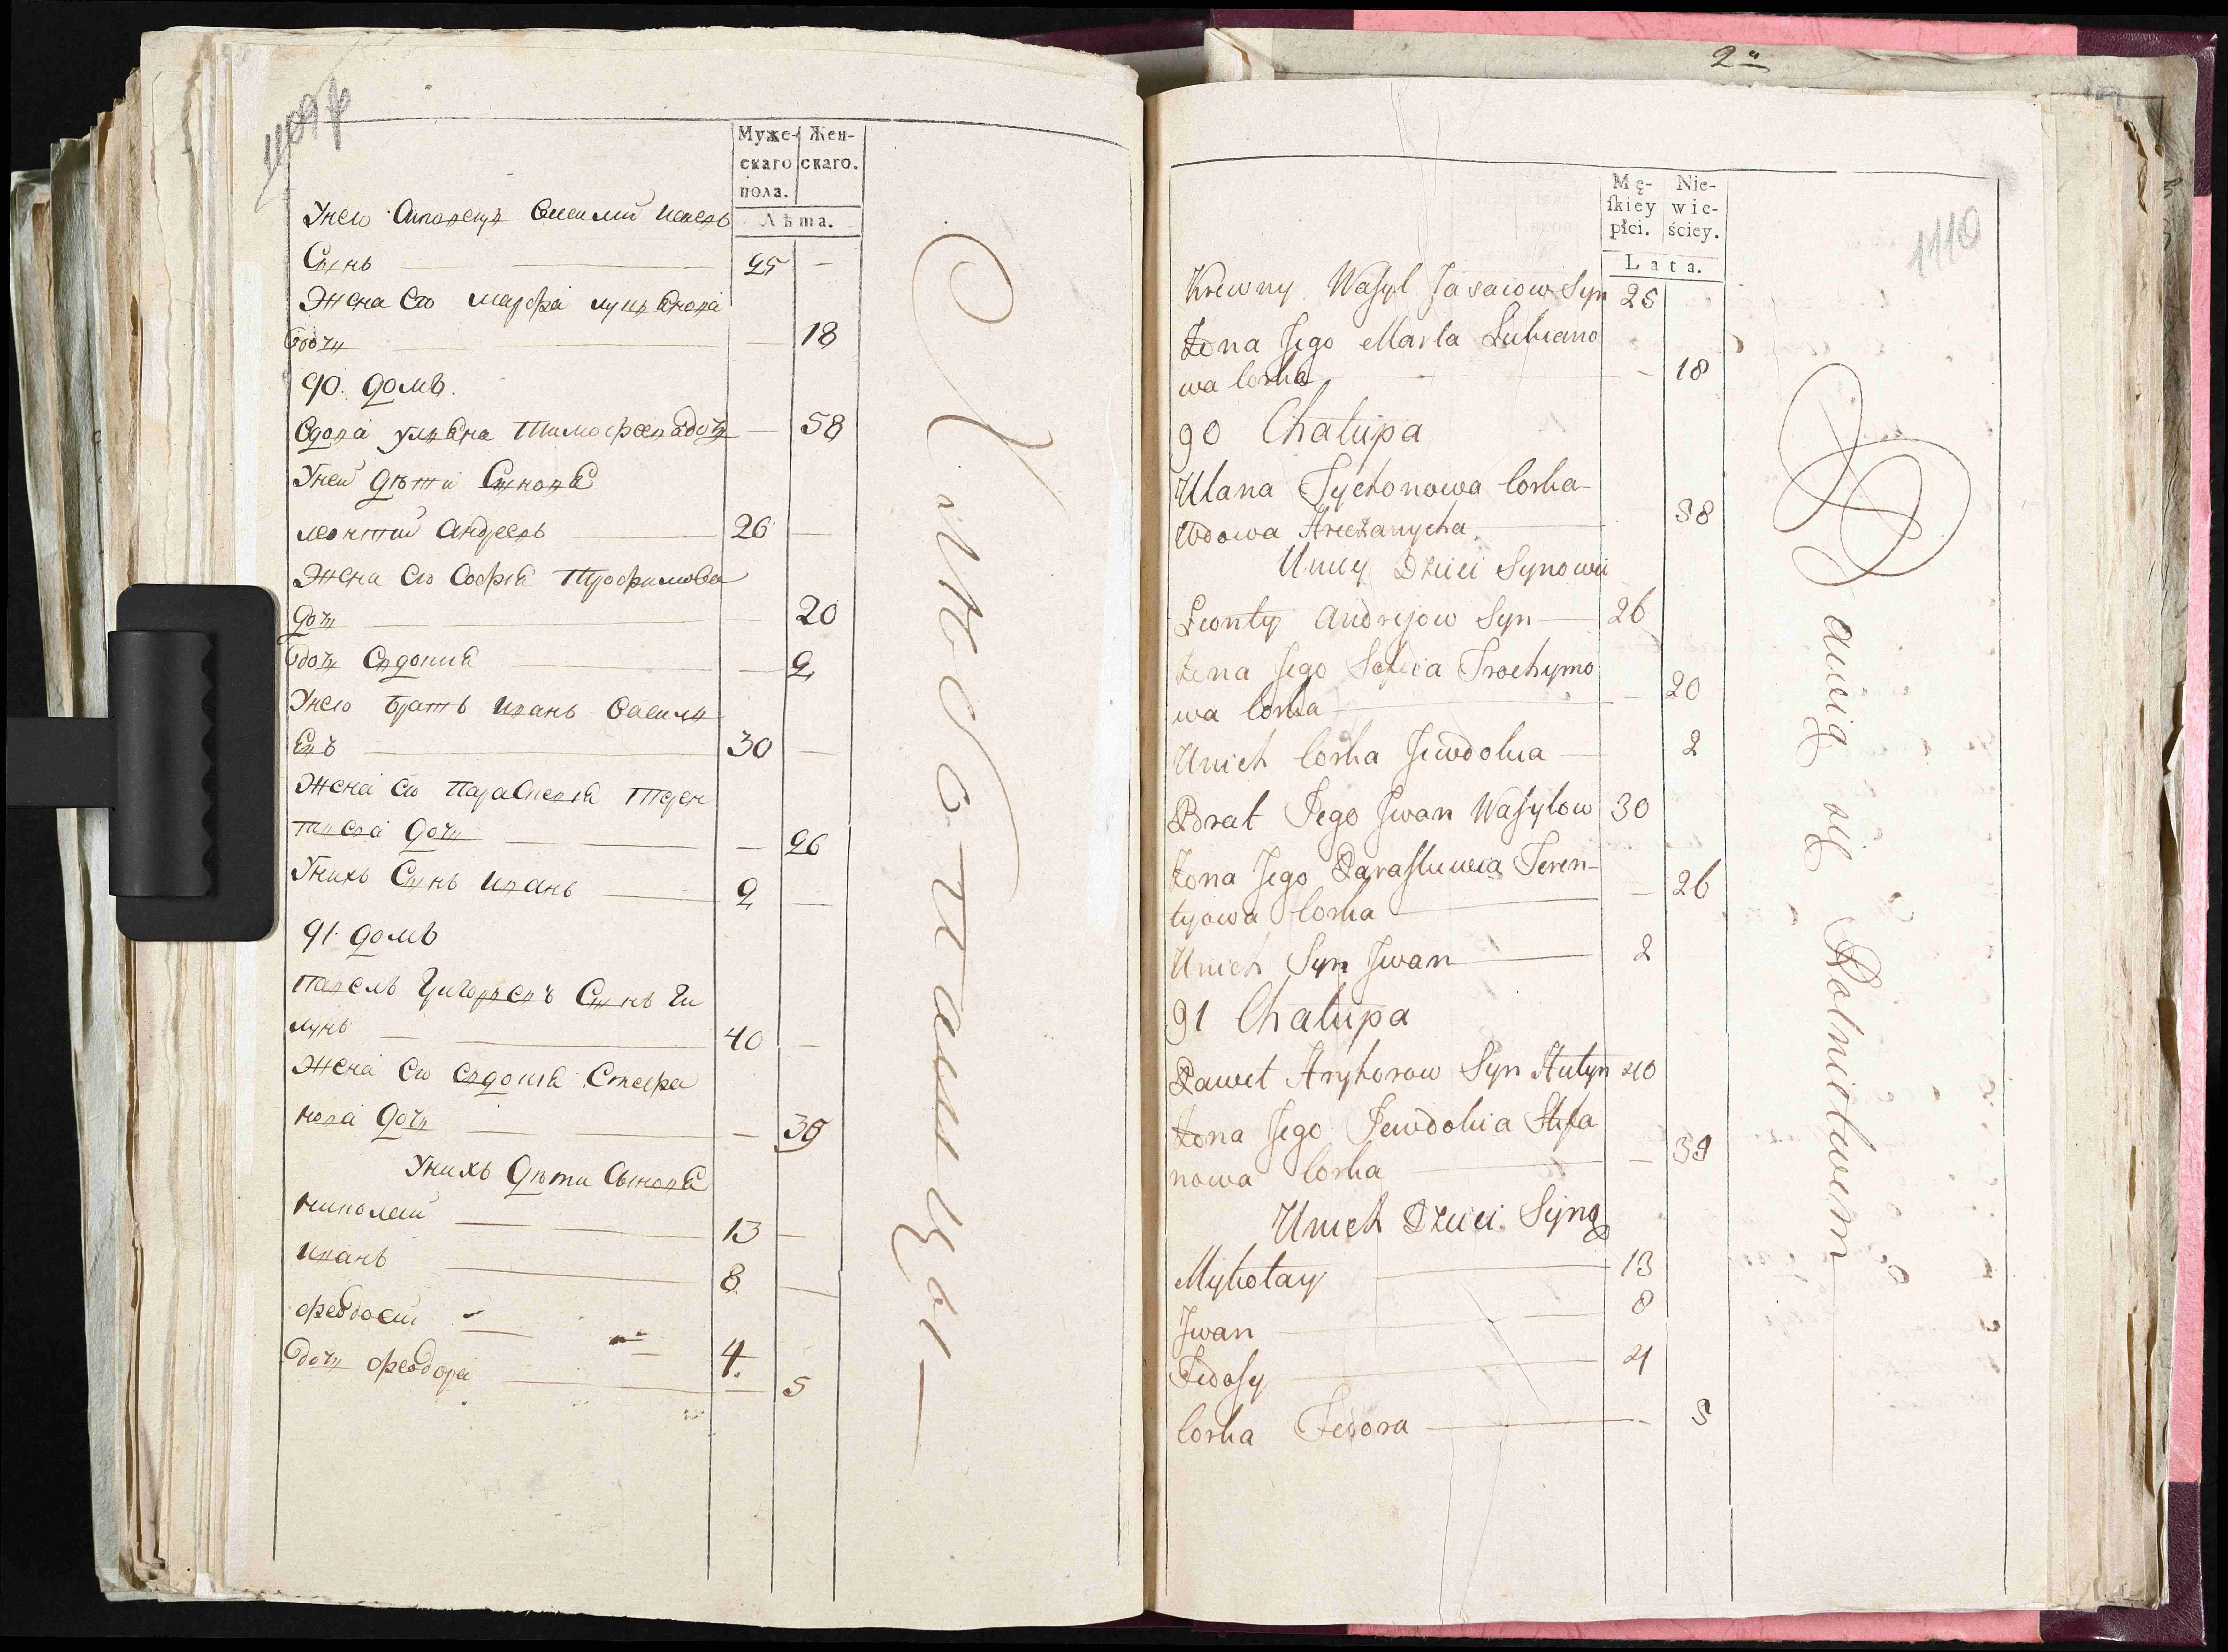 1109
Муже-
скаго
пола.
Жен-
скаго.
Лѣта.
Унего Василий
Сынъ 25
Жена Его марфа лукьянова
дочь 18
90. домъ.
Вдова ульяна Тимофеева дочь 58
Уней дѣти Сыновья
леонтий Андреевъ 26
Жена Его Софья Трофимова
дочь 20
дочь Евдокия 2
Унего братъ иванъ Василь
Евъ 30
Жена Его Параскевия Терен
тиева дочь 26
Унихъ Сынъ иванъ 2
91. домъ
павелъ Григорьевъ Сынъ Ги
лунъ 40
Жена Его Евдокия Стефа
нова дочь 39
Унихъ дѣти Сыновья
николай 13
иванъ 8
феодосий 4.
дочь феодора 5
Хлебопашцы
2
1110
Mę-
ſkiey
płci.
Nie-
wie-
ściey.
Lata.
Krewny Waſyl Syn 25
Żona Jego Marta Lukiano
wa Corka 18
90 Chałupa
Ulana Tychonowa Corka
Wdowa 58
Uniey Dzieci Synowie
Leonty Andrejow Syn 26
Żona Jego Sofija Trochymo
wa Corka 20
Unich Corka Jewdokia 2
Brat Jego Jwan Waſylow 30
Żona Jego Paraſkiewia Teren-
tyowa Corka 26
Unich Syn Jwan 2
91 Chałupa
Pawel Hryhorow Syn Hulyn 40
Żona Jego Jewdokia Stefa
nowa Corka 39
Unich Dzieci Syny
Mykołay 13
Jwan 8
Fedoſy 4
Corka Fedora 5
Bawią się Rolnictwem